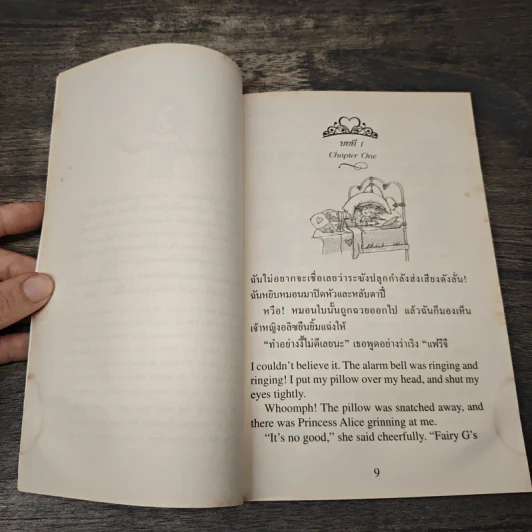 บทที่ 1
Chapter One
ฉันไม่อยากจะเชื่อเลยว่าระฆังปลุกกำลังส่งเสียงดังลั่น!
ฉันหยิบหมอนมาปิดหัวและหลับตาปี๋
หวือ! หมอนใบนั้นถูกฉวยออกไป แล้วฉันก็มองเห็น
เจ้าหญิงอลิซยืนยิ้มแฉ่งให้
“ทำอย่างงี้ไม่ดีเลยนะ” เธอพูดอย่างร่าเริง “แฟรีจี
I couldn’t believe it. The alarm bell was ringing and
ringing! I put my pillow over my head, and shut my
eyes tightly.
Whoomph! The pillow was snatched away, and
there was Princess Alice grinning at me.
“It’s no good,” she said cheerfully. “Fairy G’s
9